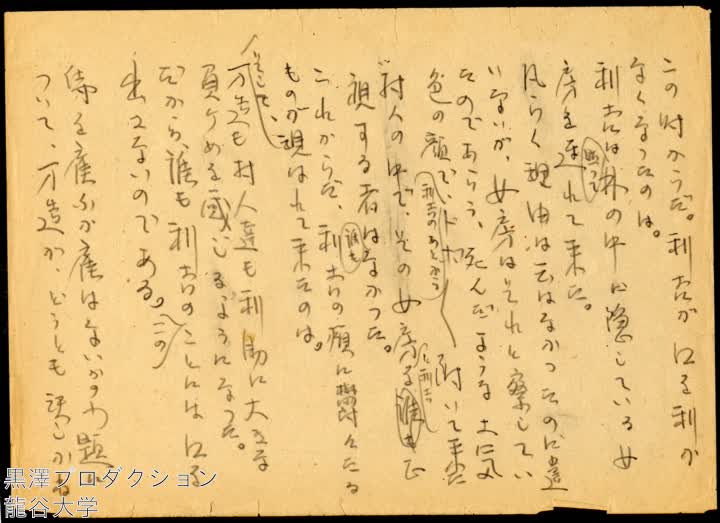 この時からだ。利吉が口を利か
なくなったのは。
利吉は黙って林の中に隠している女
房を連れて来た。
恐らく理由は云はなかったのに違
いないが、女房はそれと察してい
たのであらう、死んだような土気
色の顔で、利吉のあとからトボ〱附いて来た
村人の中で、その女房に利吉を正
視する者は誰もなかった。
これからだ、利吉の顔に
ものが現はれて来たのは。
そして、
万造も村人達も利吉に大きな
負ケめを感じるようになった。
だから、誰も利吉のことには口を
出さないのである。この
侍を雇ふか雇はないかの問題に
ついて、万造が、どうとも決しかね
黒澤プロダクション
龍谷大学